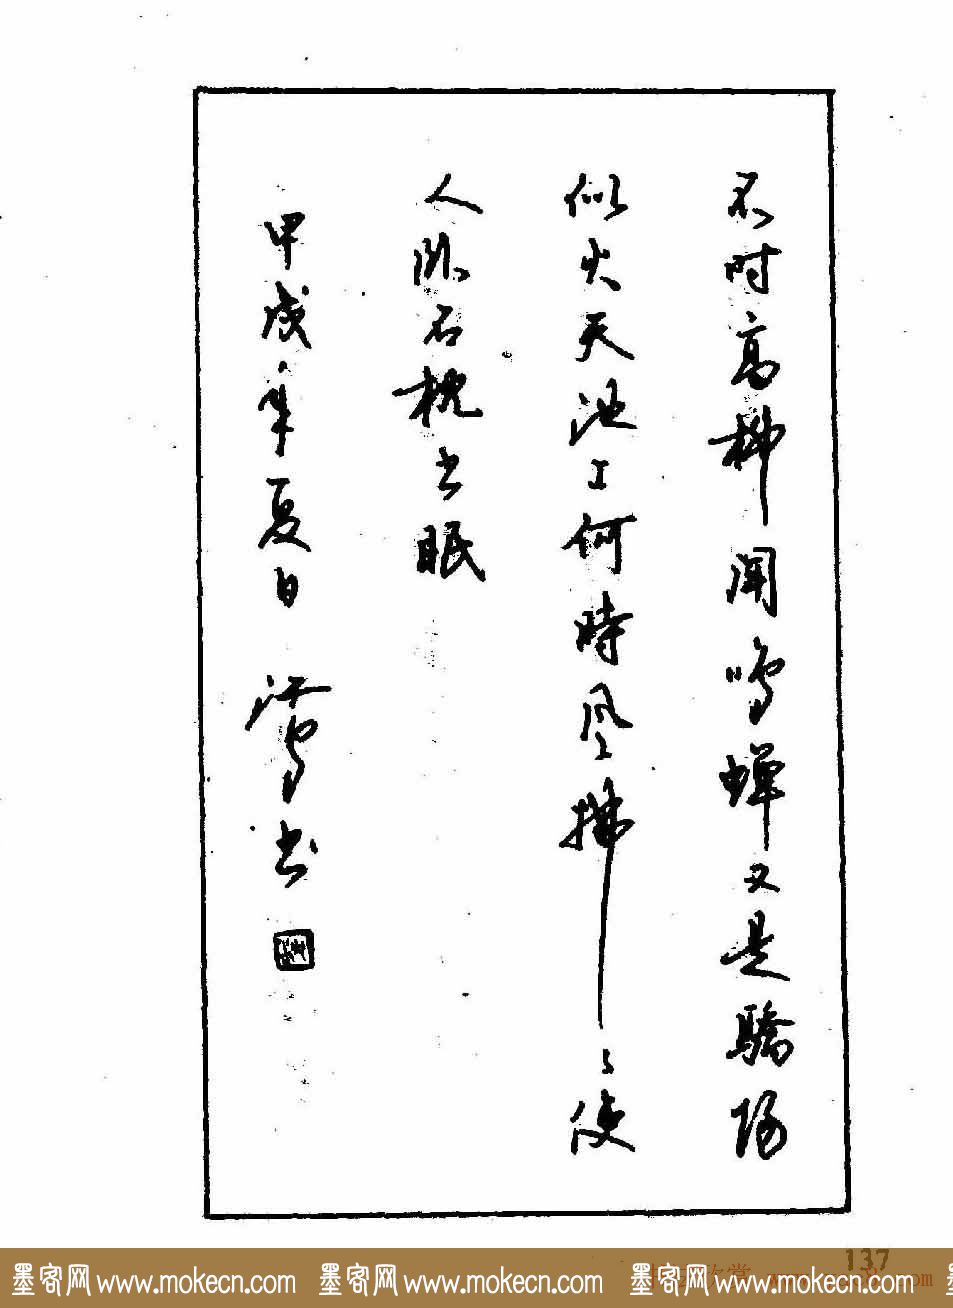 不时高柳闻鸣蝉又是驕阳
似火天池上何時风拂々使
人卧石枕书眠
甲戌年夏日 书
137
墨客网 www.mokecn.com 墨客网 www.mokecn.com 墨客网 www.mokecn.com 墨